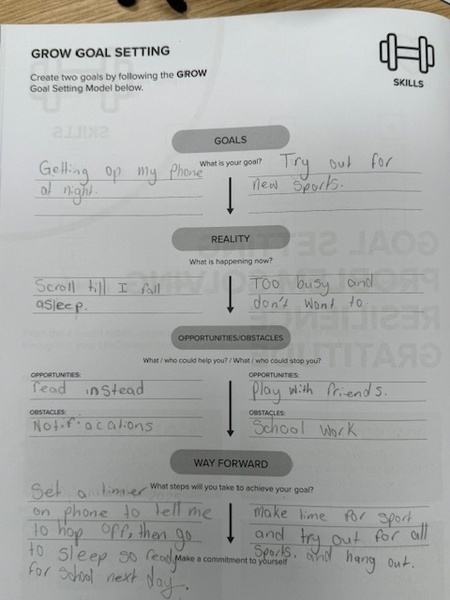 GROW GOAL SETTING
Create two goals by following the GROW
Goal Setting Model below.
SKILLS
GOALS
What is your goal?
Getting op my Phone
at night.
Try out for
new Sports.
REALITY
What is happening now?
Scroll till I fall
asleep.
Too busy and
don't want to.
OPPORTUNITIES/OBSTACLES
What / who could help you? / What / who could stop you?
OPPORTUNITIES:
read instead
OPPORTUNITIES:
Play with friends.
OBSTACLES:
Notifiacations
OBSTACLES:
School work
WAY FORWARD
What steps will you take to achieve your goal?
Set a timmer
on phone to tell me
to hop off, then go
to sleep so ready
for School next day.
make time for sport
and try out for all
Sports. and hang out.
Make a commitment to yourself